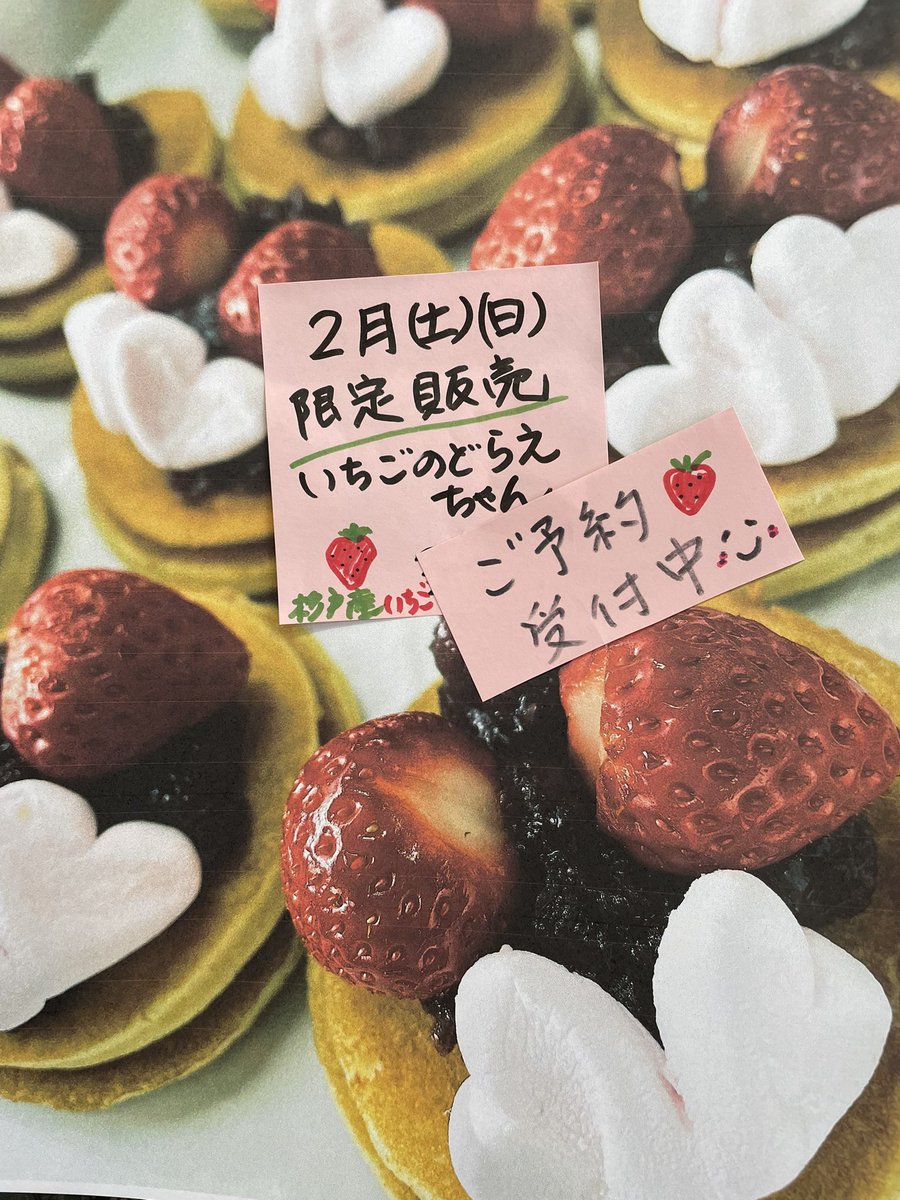 2月(土)(日)
限定販売
いちごのどらえ
ちゃん
杉戸産いちご
ご予約
受付中